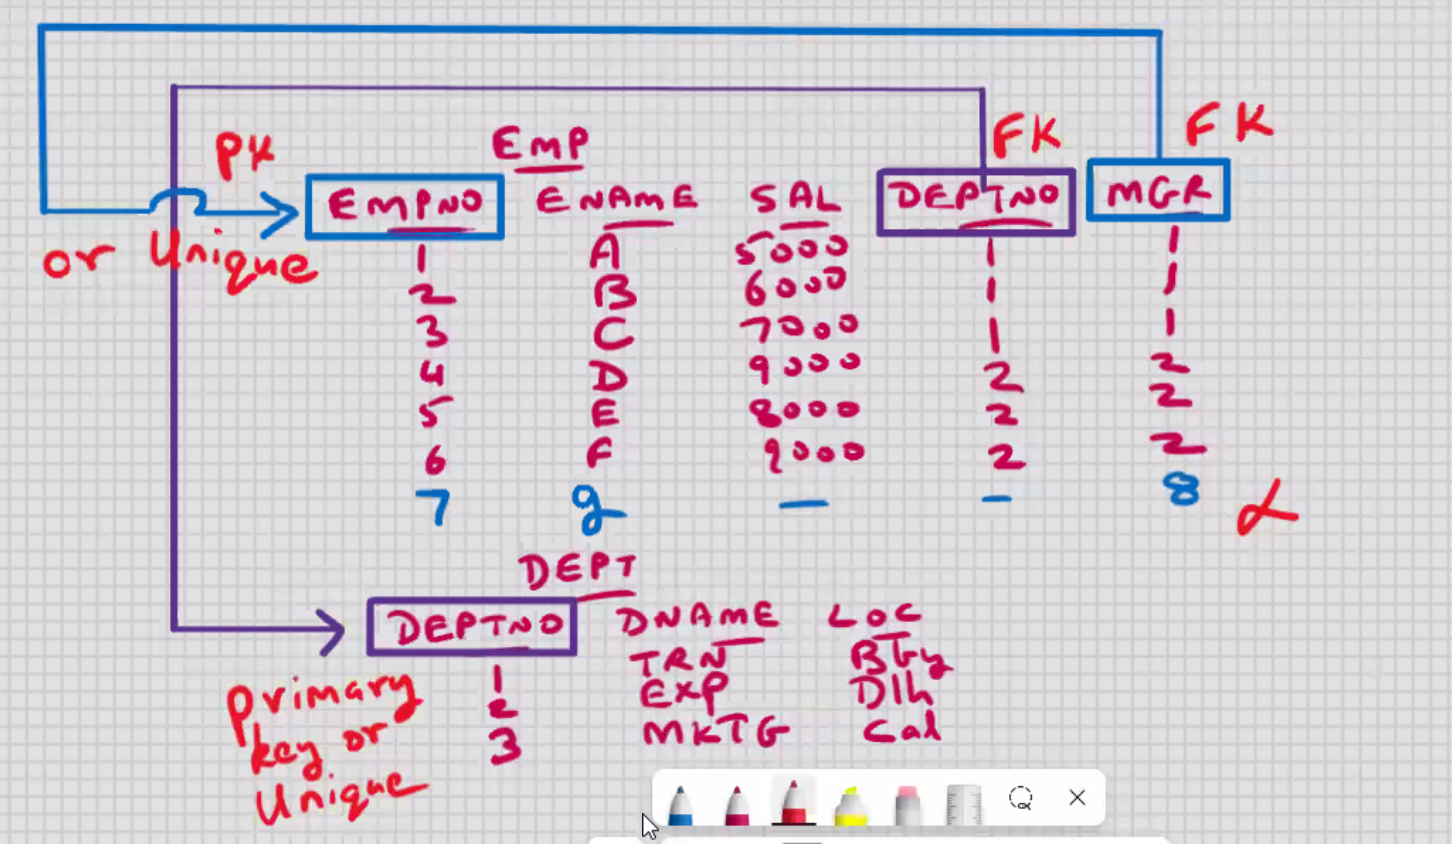 FK
FK
PK
EMP
EMPNO ENAME SAL DEPTNO MGR
or Unique
1 A 5000 1 1
2 B 6000 1 1
3 C 7000 1 1
4 D 9000 2 2
5 E 8000 2 2
6 F 9000 2 2
7 g — — 8
DEPT
DEPTNO DNAME LOC
1 TRN
2 EXP Dlh
3 MKTG Cal
primary
key or
Unique